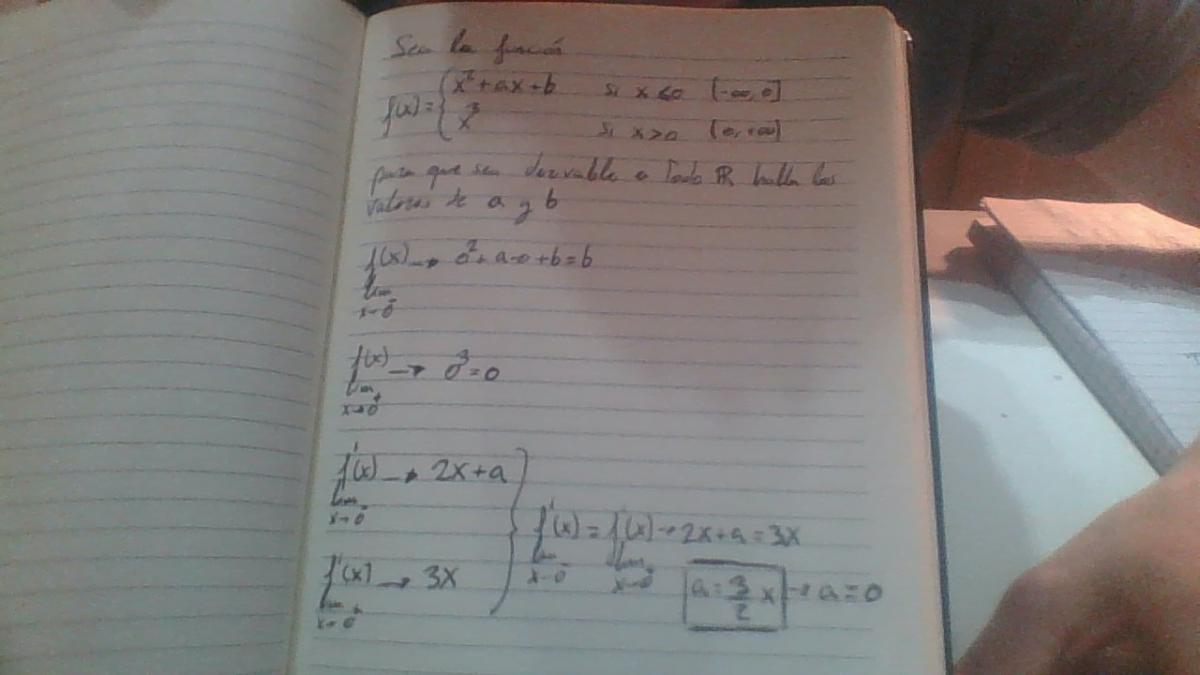 Sea la función
f(x) = { x² + ax + b si x ≤ 0 (-∞, 0]
x³ si x > 0 (0, +∞)
para que sea derivable e Todo ℝ halla los
valores de a y b
f(x) → 0² + a·0 + b = b
lim
x→0⁻
f(x) → 0³ = 0
lim
x→0⁺
f'(x) → 2x + a
lim
x→0⁻
f'(x) = f'(x) → 2x + a = 3x
lim lim
x→0⁻ x→0⁺
f'(x) → 3x
lim
x→0⁺
a = 3/2 x → a = 0